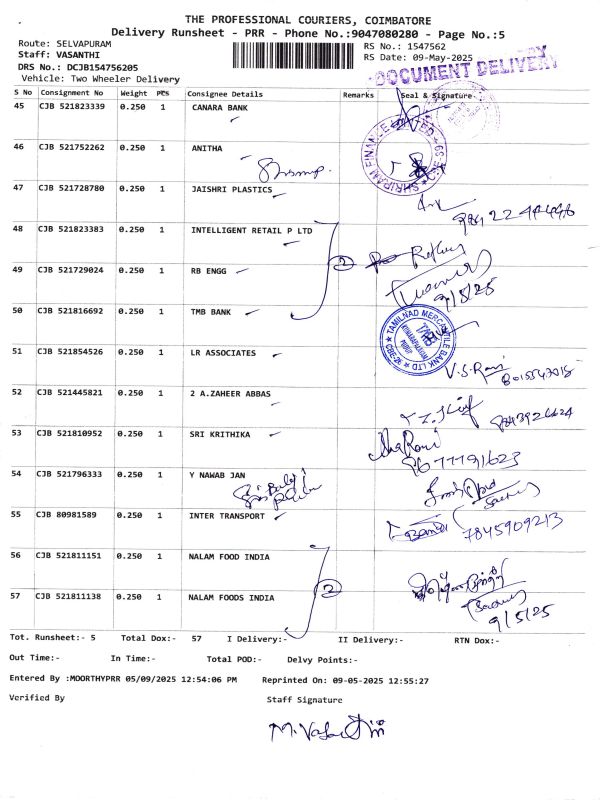 THE PROFESSIONAL COURIERS, COIMBATORE
Delivery Runsheet - PRR - Phone No.:9047080280 - Page No.:5
Route: SELVAPURAM
RS No.: 1547562
Staff: VASANTHI
RS Date: 09-May-2025
DRS No.: DCJB154756205
DOCUMENT DELIVERY
Vehicle: Two Wheeler Delivery
S No Consignment No Weight PCS Consignee Details Remarks Seal & Signature
45 CJB 521823339 0.250 1 CANARA BANK
46 CJB 521752262 0.250 1 ANITHA
SHRIRAM FINANCE LIMITED
47 CJB 521728780 0.250 1 JAISHRI PLASTICS
48 CJB 521823383 0.250 1 INTELLIGENT RETAIL P LTD
2
49 CJB 521729024 0.250 1 RB ENGG
9/5/25
50 CJB 521816692 0.250 1 TMB BANK
TAMILNAD MERCANTILE BANK LTD
51 CJB 521854526 0.250 1 LR ASSOCIATES
V.S.Rani
52 CJB 521445821 0.250 1 2 A.ZAHEER ABBAS
53 CJB 521810952 0.250 1 SRI KRITHIKA
54 CJB 521796333 0.250 1 Y NAWAB JAN
55 CJB 80981589 0.250 1 INTER TRANSPORT
7845909213
56 CJB 521811151 0.250 1 NALAM FOOD INDIA
2
57 CJB 521811138 0.250 1 NALAM FOODS INDIA
9/5/25
Tot. Runsheet:- 5 Total Dox:- 57 I Delivery:- II Delivery:- RTN Dox:-
Out Time:- In Time:- Total POD:- Delvy Points:-
Entered By :MOORTHYPRR 05/09/2025 12:54:06 PM Reprinted On: 09-05-2025 12:55:27
Verified By Staff Signature